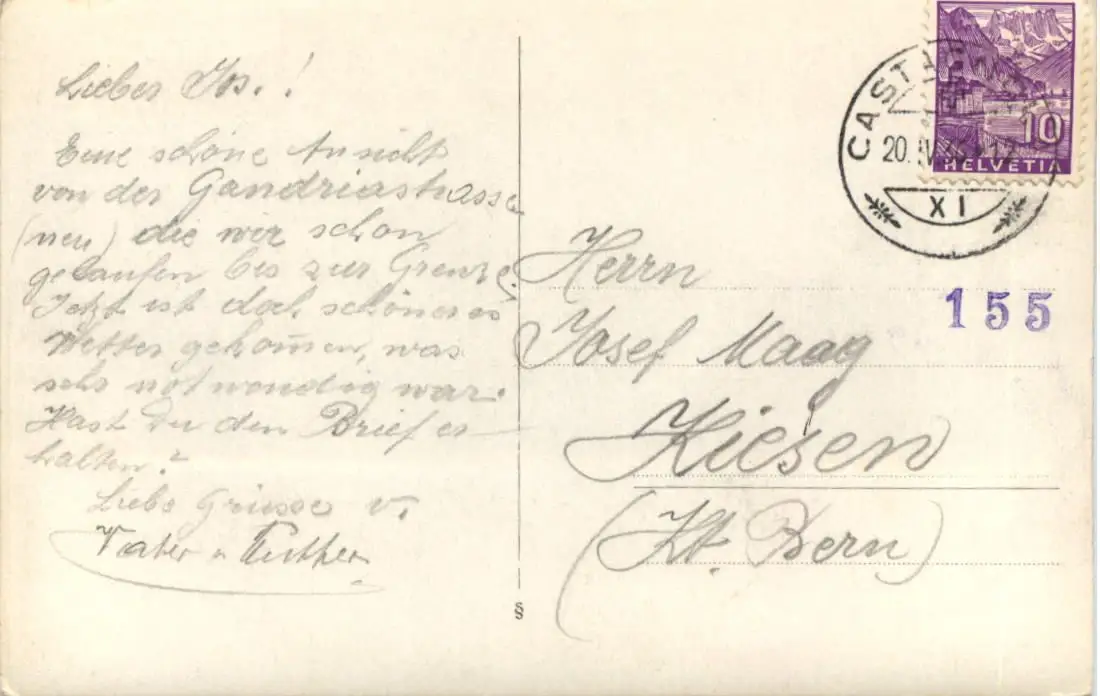 Lieber Jos.!
Eine schöne Ansicht
von der Gandriastrasse
(neu) die wir schon
gelaufen bis zur Grenze.
Jetzt ist doch schöneres
Wetter gekom̅en, was
sehr notwendig war.
Hast Du den Brief er-
halten?
Liebe Grüsse v.
Vater u
§
Herrn
Josef Maag
Kiesen
(Kt. Bern)
155
10
HELVETIA
XI